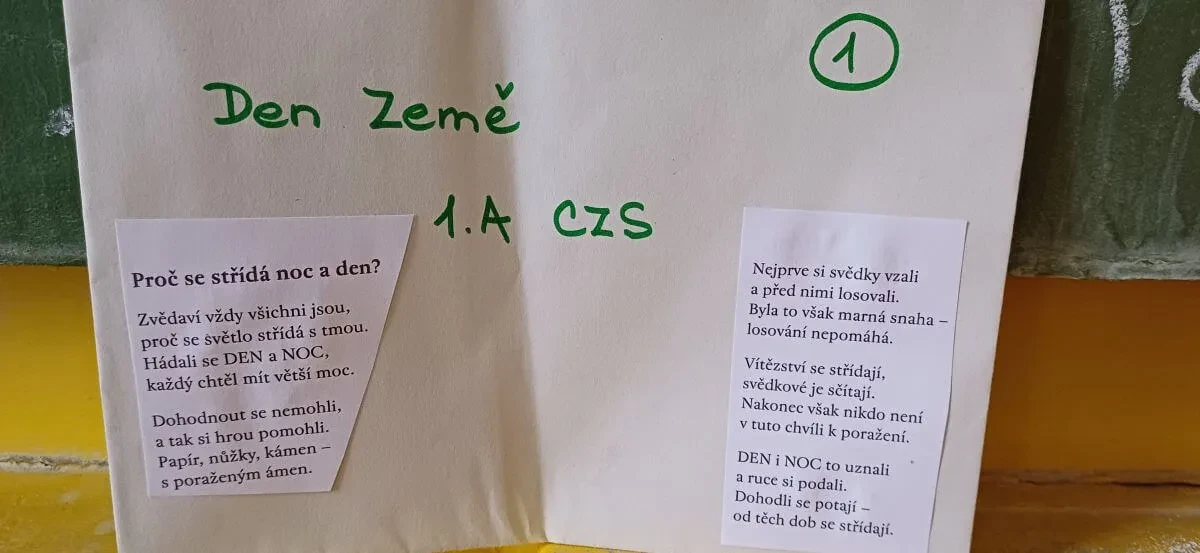 1
Den Země
1.A CZS
Proč se střídá noc a den?
Zvědaví vždy všichni jsou,
proč se světlo střídá s tmou.
Hádali se DEN a NOC,
každý chtěl mít větší moc.
Dohodnout se nemohli,
a tak si hrou pomohli.
Papír, nůžky, kámen –
s poraženým ámen.
Nejprve si svědky vzali
a před nimi losovali.
Byla to však marná snaha –
losování nepomáhá.
Vítězství se střídají,
svědkové je sčítají.
Nakonec však nikdo není
v tuto chvíli k poražení.
DEN i NOC to uznali
a ruce si podali.
Dohodli se potají –
od těch dob se střídají.